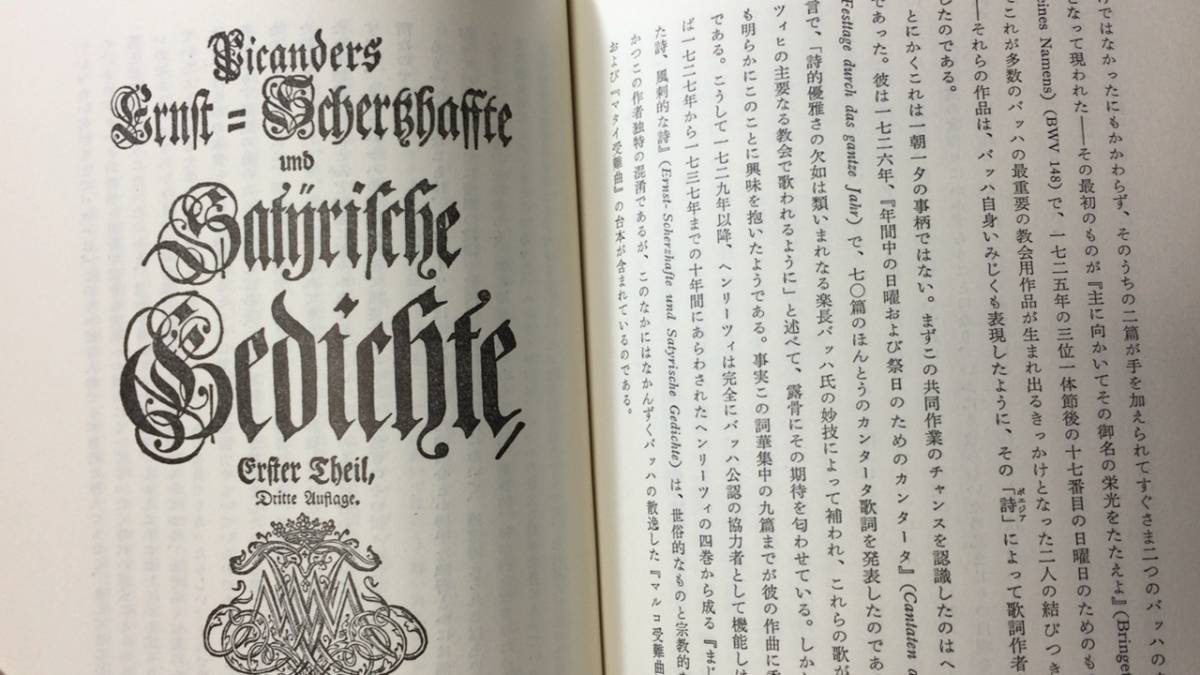 Picanders
Ernst = Schertzhaffte
und
Satÿrische
Gedichte,
Erster Theil,
Dritte Auflage.
けではなかったにもかかわらず、そのうちの二篇が手を加えられてすぐさま二つのバッハの
となって現われた――その最初のものが『主に向かいてその御名の栄光をたたえよ』(Bringet
eines Namens) (BWV 148) で、一七二五年の三位一体節後の十七番目の日曜日のためのも
これが多数のバッハの最重要の教会用作品が生まれ出るきっかけとなった二人の結びつき
――それらの作品は、バッハ自身いみじくも表現したように、その「詩ポエジア」によって歌詞作者
したのである。
とにかくこれは一朝一夕の事柄ではない。まずこの共同作業のチャンスを認識したのはヘ
であった。彼は一七二六年、『年間中の日曜および祭日のためのカンタータ』(Cantaten a
Festtage durch das gantze Jahr) で、七〇篇のほんとうのカンタータ歌詞を発表したのであ
言で、「詩的優雅さの欠如は類いまれなる楽長バッハ氏の妙技によって補われ、これらの歌が
ツィヒの主要なる教会で歌われるように」と述べて、露骨にその期待を匂わせている。しか
も明らかにこのことに興味を抱いたようである。事実この詞華集中の九篇までが彼の作曲に
である。こうして一七二九年以降、ヘンリーツィは完全にバッハ公認の協力者として機能し
ば一七二七年から一七三七年までの十年間にあらわされたヘンリーツィの四巻から成る『まじ
た詩、風刺的な詩』(Ernst- Scherzhafte und Satyrische Gedichte) は、世俗的なものと宗教的な
かつこの作者独特の混淆であるが、このなかにはなかんずくバッハの散逸した『マルコ受難曲
および『マタイ受難曲』の台本が含まれているのである。